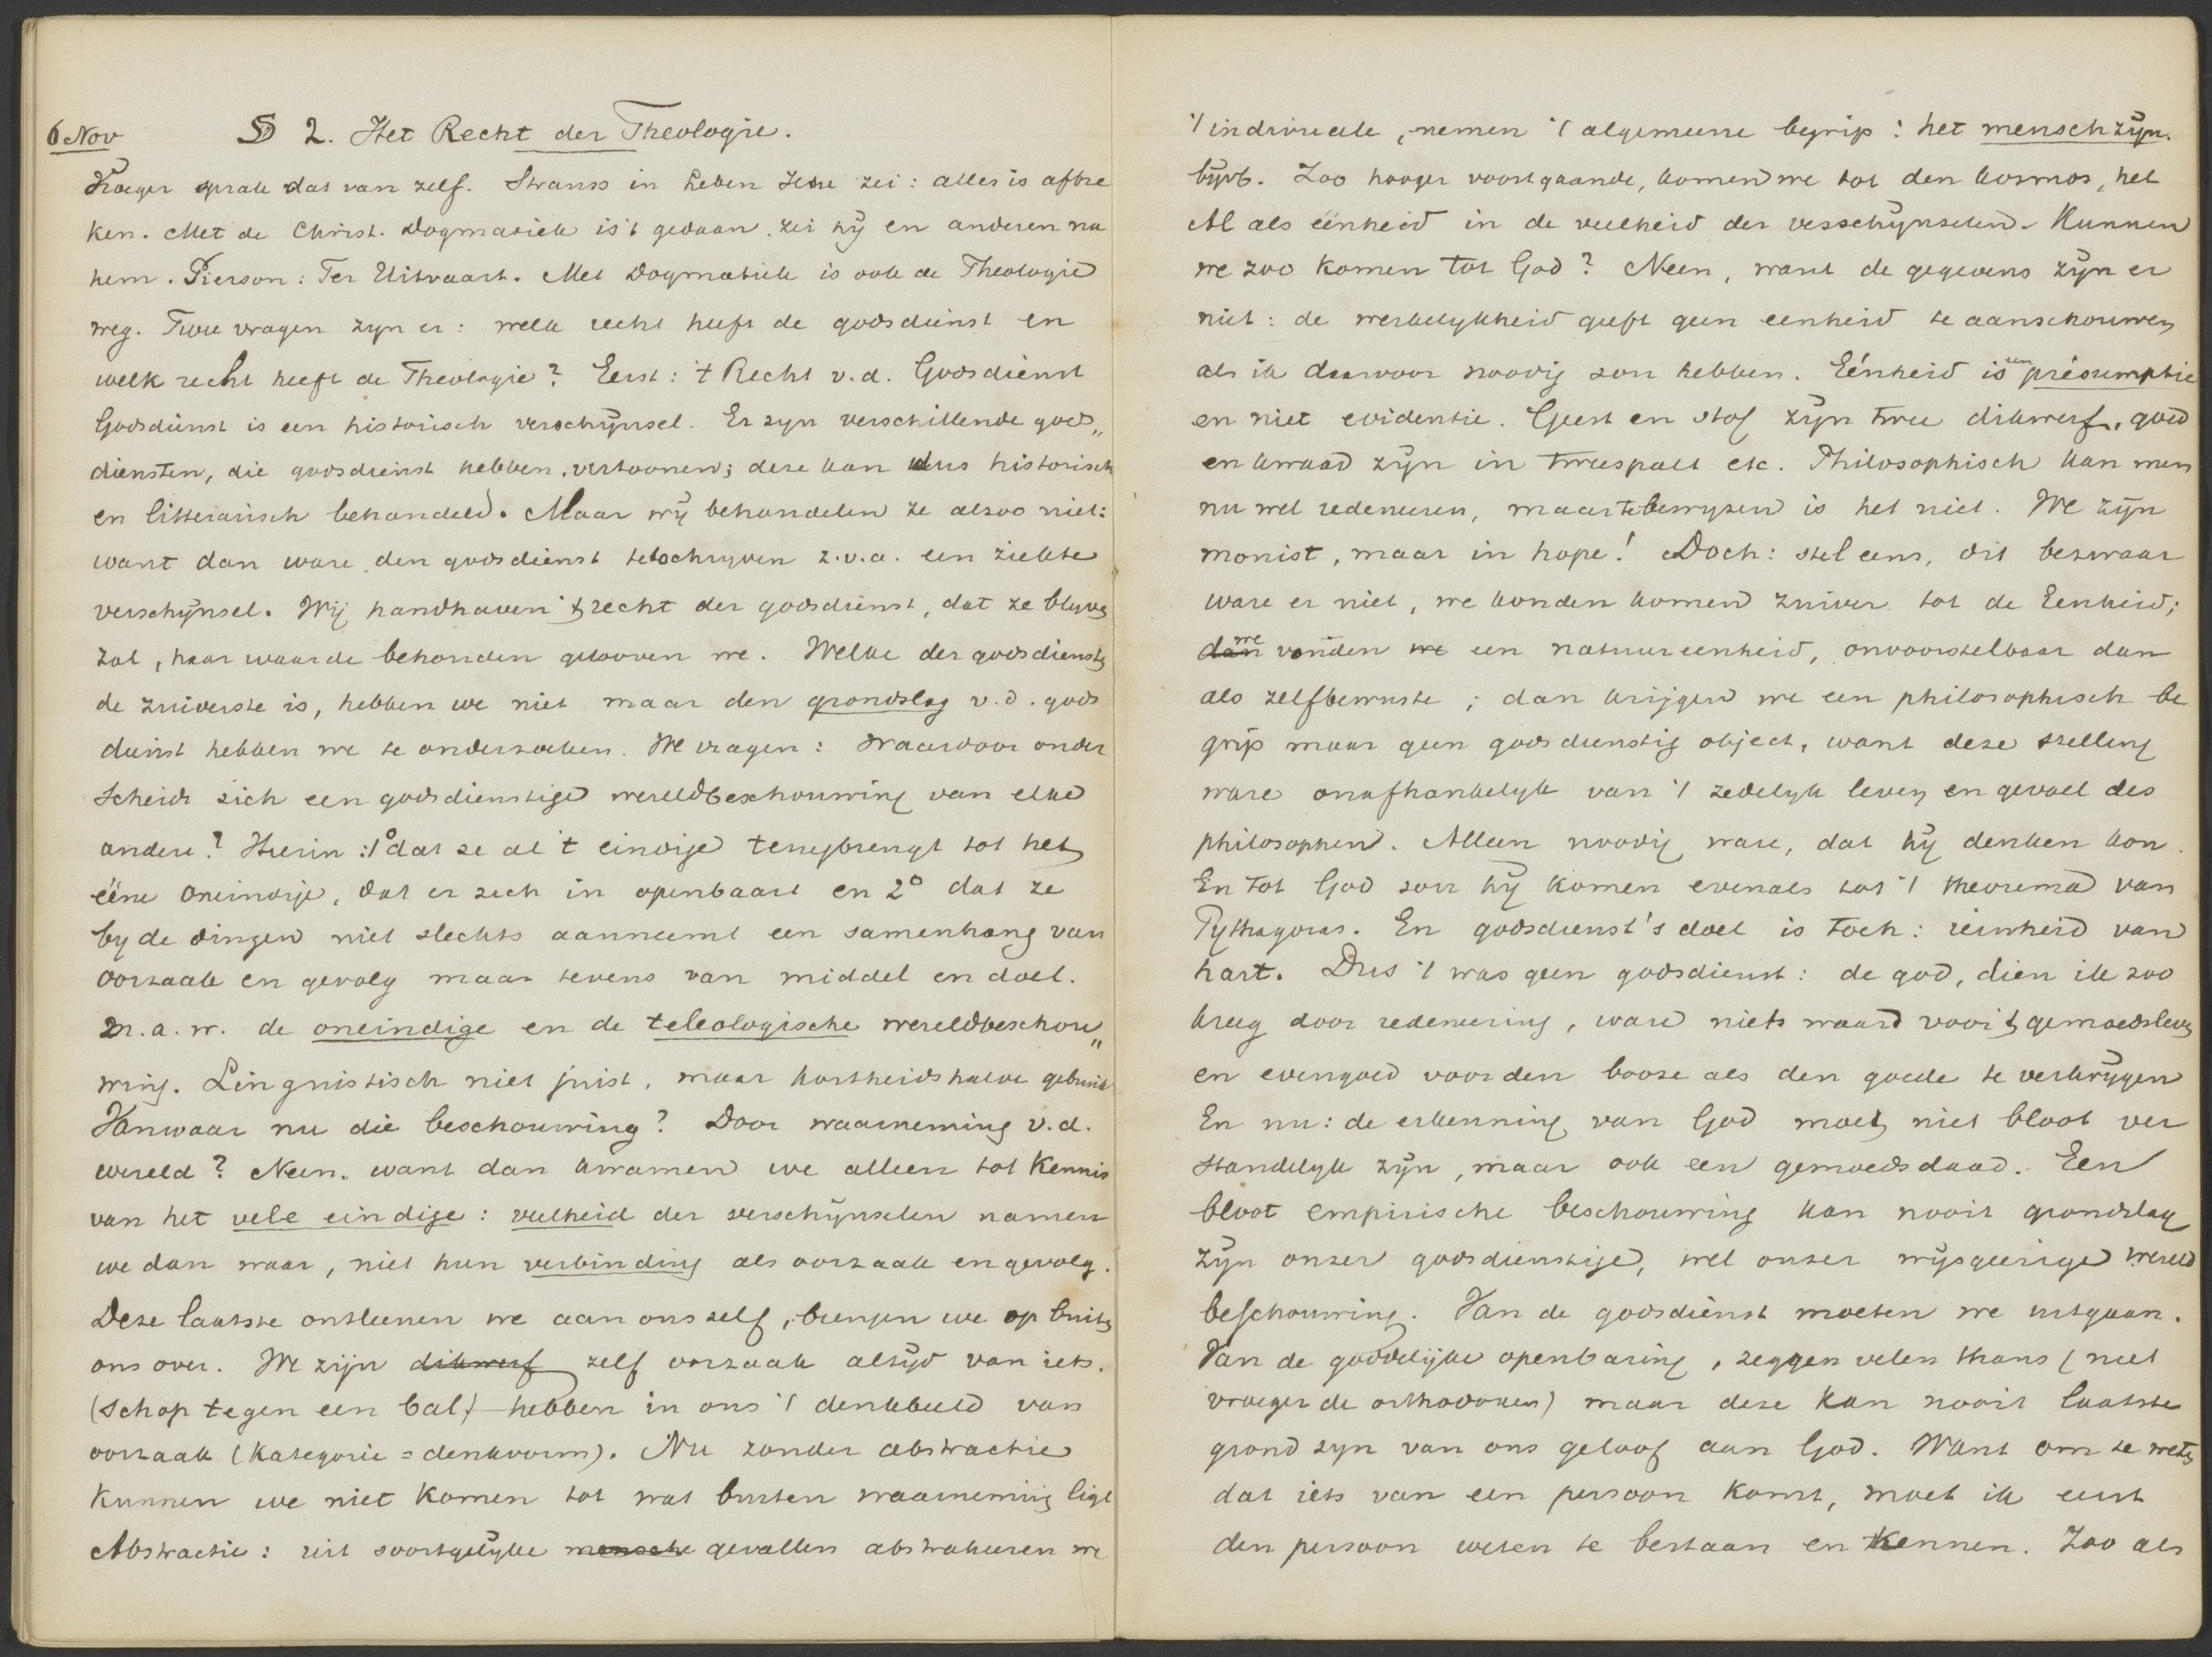 6 Nov § 2. Het Recht der Theologie.
Vroeger sprak dat van zelf. Strauss in Leben Jesu zei: alles is afbre
ken. Met de Christ. Dogmatiek is 't gedaan, zei hij en anderen na
hem. Pierson: Ter Uitvaart. Met Dogmatiek is ook de Theologie
weg. Twee vragen zyn er: welk recht heeft de godsdienst en
welk recht heeft de Theologie? Eerst: 't Recht v.d. Godsdienst
Godsdienst is een historisch verschijnsel. Er zyn verschillende gods„
diensten, die godsdienst hebben, vertoonen; deze kan dus historisch
en litterarisch behandeld. Maar wij behandelen ze alzoo niet:
want dan ware den godsdienst te beschryven z.v.a. een ziekte
verschijnsel. Wij handhaven 't recht der godsdienst, dat ze blyven
zal, haar waarde behouden gelooven we. Welke der godsdiensten
de zuiverste is, hebben we niet maar den grondslag v.d. gods
dienst hebben we te onderzoeken. We vragen: Waardoor onder
scheidt zich een godsdienstige wereldbeschouwing van elke
andere? Hierin: 1° dat ze al 't eindige terugbrengt tot het
ééne oneindige, dat er zich in openbaart en 2° dat ze
by de dingen niet slechts aanneemt een samenhang van
oorzaak en gevolg maar tevens van middel en doel.
m.a.w. de oneindige en de teleologische wereldbeschou„
wing. Linguistisch niet juist, maar kortheidshalve gebruikt
Vanwaar nu die beschouwing? Door waarneming v.d.
wereld? Neen, want dan kwamen we alleen tot Kennis
van het vele eindige: veelheid der verschijnselen namen
we dan waar, niet hun verbinding als oorzaak en gevolg.
Deze laatste ontleenen we aan ons zelf, brengen we op buiten
ons over. We zijn dikwerf zelf oorzaak altijd van iets.
(schop tegen een bal) hebben in ons 't denkbeeld van
oorzaak (kategorie = denkvorm). Nu zonder abstractie
kunnen we niet komen tot wat buiten waarneming ligt
Abstractie: uit soortgelijke mensche gevallen abstraheeren we
't individueele, nemen 't algemeene begrip: het mensch zijn.
bijvb. Zoo hooger voortgaande, komen we tot den kosmos, het
Al als éénheid in de veelheid der verschijnselen. Kunnen
we zoo komen tot God? Neen, want de gegevens zijn er
niet: de werkelykheid geeft geen eenheid te aanschouwen
als ik daarvoor noodig zou hebben. Eénheid is een présumptie
en niet evidentie. Geest en stof zijn twee dikwerf, goed
en kwaad zijn in tweespalt etc. Philosophisch kan men
nu wel redeneeren, maar te bewyzen is het niet. We zijn
monist, maar in hope! Doch: stel eens, dit bezwaar
ware er niet, we konden komen zuiver tot de Eenheid;
dan we vonden we een natuureenheid, onvoorstelbaar dan
als zelfbewuste; dan krijgen we een philosophisch be
grip maar geen godsdienstig object, want deze stelling
ware onafhankelyk van 't zedelyk leven en gevoel des
philosophen. Alleen noodig ware, dat hij denken kon.
En tot God zou hij komen evenals tot 't theorema van
Pythagoras. En godsdienst's doel is toch: reinheid van
hart. Dus 't was geen godsdienst: de god, dien ik zoo
kreeg door redeneering, ware niets waard voor 't gemoedsleven
en evengoed voor den booze als den goede te verkrijgen
En nu: de erkenning van God moet niet bloot ver
standelyk zijn, maar ook een gemoedsdaad. Een
bloot empirische beschouwing kan nooit grondslag
zijn onzer godsdienstige, wel onzer wijsgeerige wereld
beschouwing. Van de godsdienst moeten we uitgaan.
Van de goddelijke openbaring, zeggen velen thans (niet
vroeger de orthodoxen) maar deze kan nooit laatste
grond zyn van ons geloof aan God. Want om te weten
dat iets van een persoon komt, moet ik eerst
den persoon weten te bestaan en kennen. Zoo als